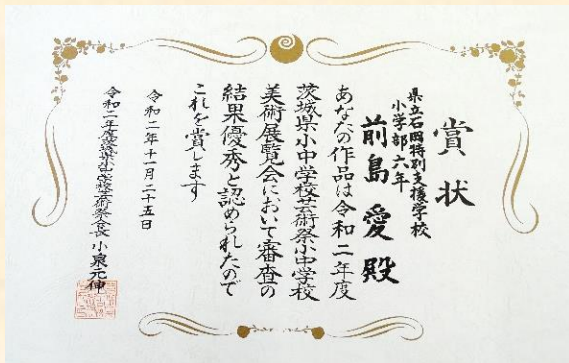 賞状
県立石岡特別支援学校
小学部六年
前島愛殿
あなたの作品は令和二年度
茨城県小中学校芸術祭小中学校
美術展覧会において審査の
結果優秀と認められたので
これを賞します
令和二年十一月二十五日
令和二年度茨城県小中学校芸術祭会長 小泉元伸